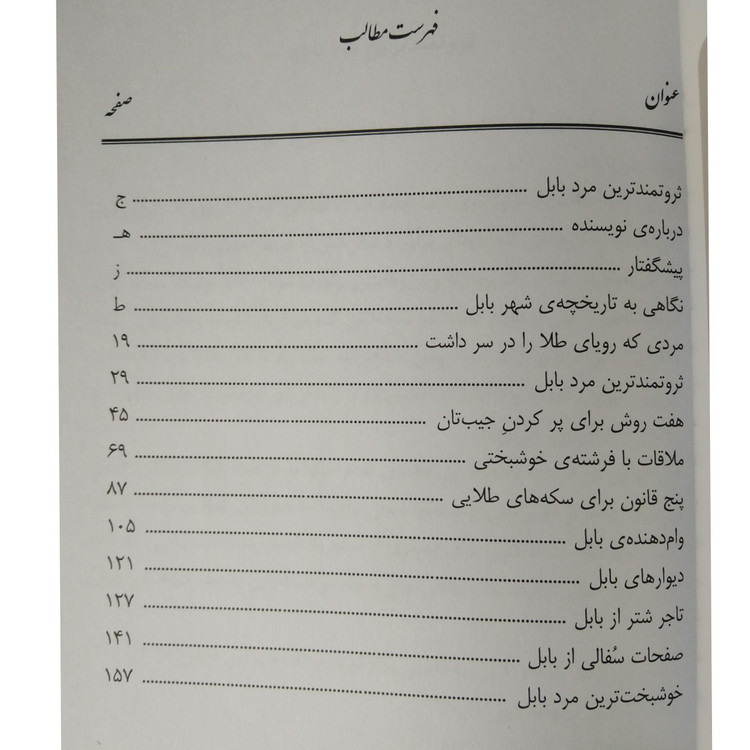 فهرست مطالب
عنوان صفحه
ثروتمندترین مرد بابل ........ ج
درباره‌ی نویسنده ........ هـ
پیشگفتار ........ ز
نگاهی به تاریخچه‌ی شهر بابل ........ ط
مردی که رویای طلا را در سر داشت ........ ۱۹
ثروتمندترین مرد بابل ........ ۲۹
هفت روش برای پر کردنِ جیب‌تان ........ ۴۵
ملاقات با فرشته‌ی خوشبختی ........ ۶۹
پنج قانون برای سکه‌های طلایی ........ ۸۷
وام‌دهنده‌ی بابل ........ ۱۰۵
دیوارهای بابل ........ ۱۲۱
تاجر شتر از بابل ........ ۱۲۷
صفحات سُفالی از بابل ........ ۱۴۱
خوشبخت‌ترین مرد بابل ........ ۱۵۷